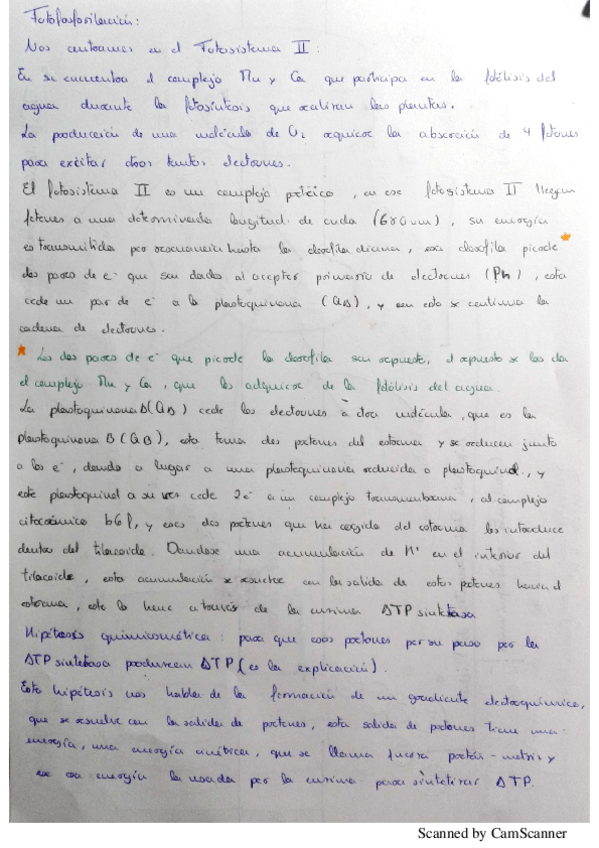 Fotofosforilación:
Nos centramos en el Fotosistema II:
En se encuentra el complejo Mn y Ca que participa en la fotólisis del
agua durante la fotosíntesis que realizan las plantas.
La producción de una molécula de O2 requiere la absorción de 4 fotones
para excitar otros tantos electrones.
El fotosistema II es un complejo proteico, en ese fotosistema II llegan
fotones a una determinada longitud de onda (680nm), su energía
es transmitida por resonancia hasta la clorofila diana, esa clorofila pierde *
dos pares de e- que son dados al aceptor primario de electrones (Ph), esta
cede un par de e- a la plastoquinona (QA), y con esto se continua la
cadena de electrones.
* Los dos pares de e- que pierde la clorofila son repuesto, el repuesto se los da
el complejo Mn y Ca, que los adquiere de la fotólisis del agua.
La plastoquinona (QA) cede los electrones a otra molécula, que es la
plastoquinona B (QB), esta toma dos protones del estroma y se reducen junto
a los e-, dando a lugar a una plastoquinona reducida o plastoquinol, y
este plastoquinol a su vez cede 2e- a un complejo transmembrana, al complejo
citocrómico b6f, y esos dos protones que ha cogido del estroma los introduce
dentro del tilacoide. Dandose una acumulación de H+ en el interior del
tilacoide, esta acumulación se resuelve con la salida de estos protones hacia el
estroma, esto lo hace a través de la enzima ATP sintetasa
Hipótesis quimiosmótica: para que esos protones por su paso por la
ATP sintetasa produzcan ATP (es la explicación).
Esta hipótesis nos habla de la formación de un gradiente electroquímico,
que se resuelve con la salida de protones, esta salida de protones tiene una
energía, una energía cinética, que se llama fuerza protón-motriz y
es esa energía la usada por la enzima para sintetizar ATP.
Scanned by CamScanner